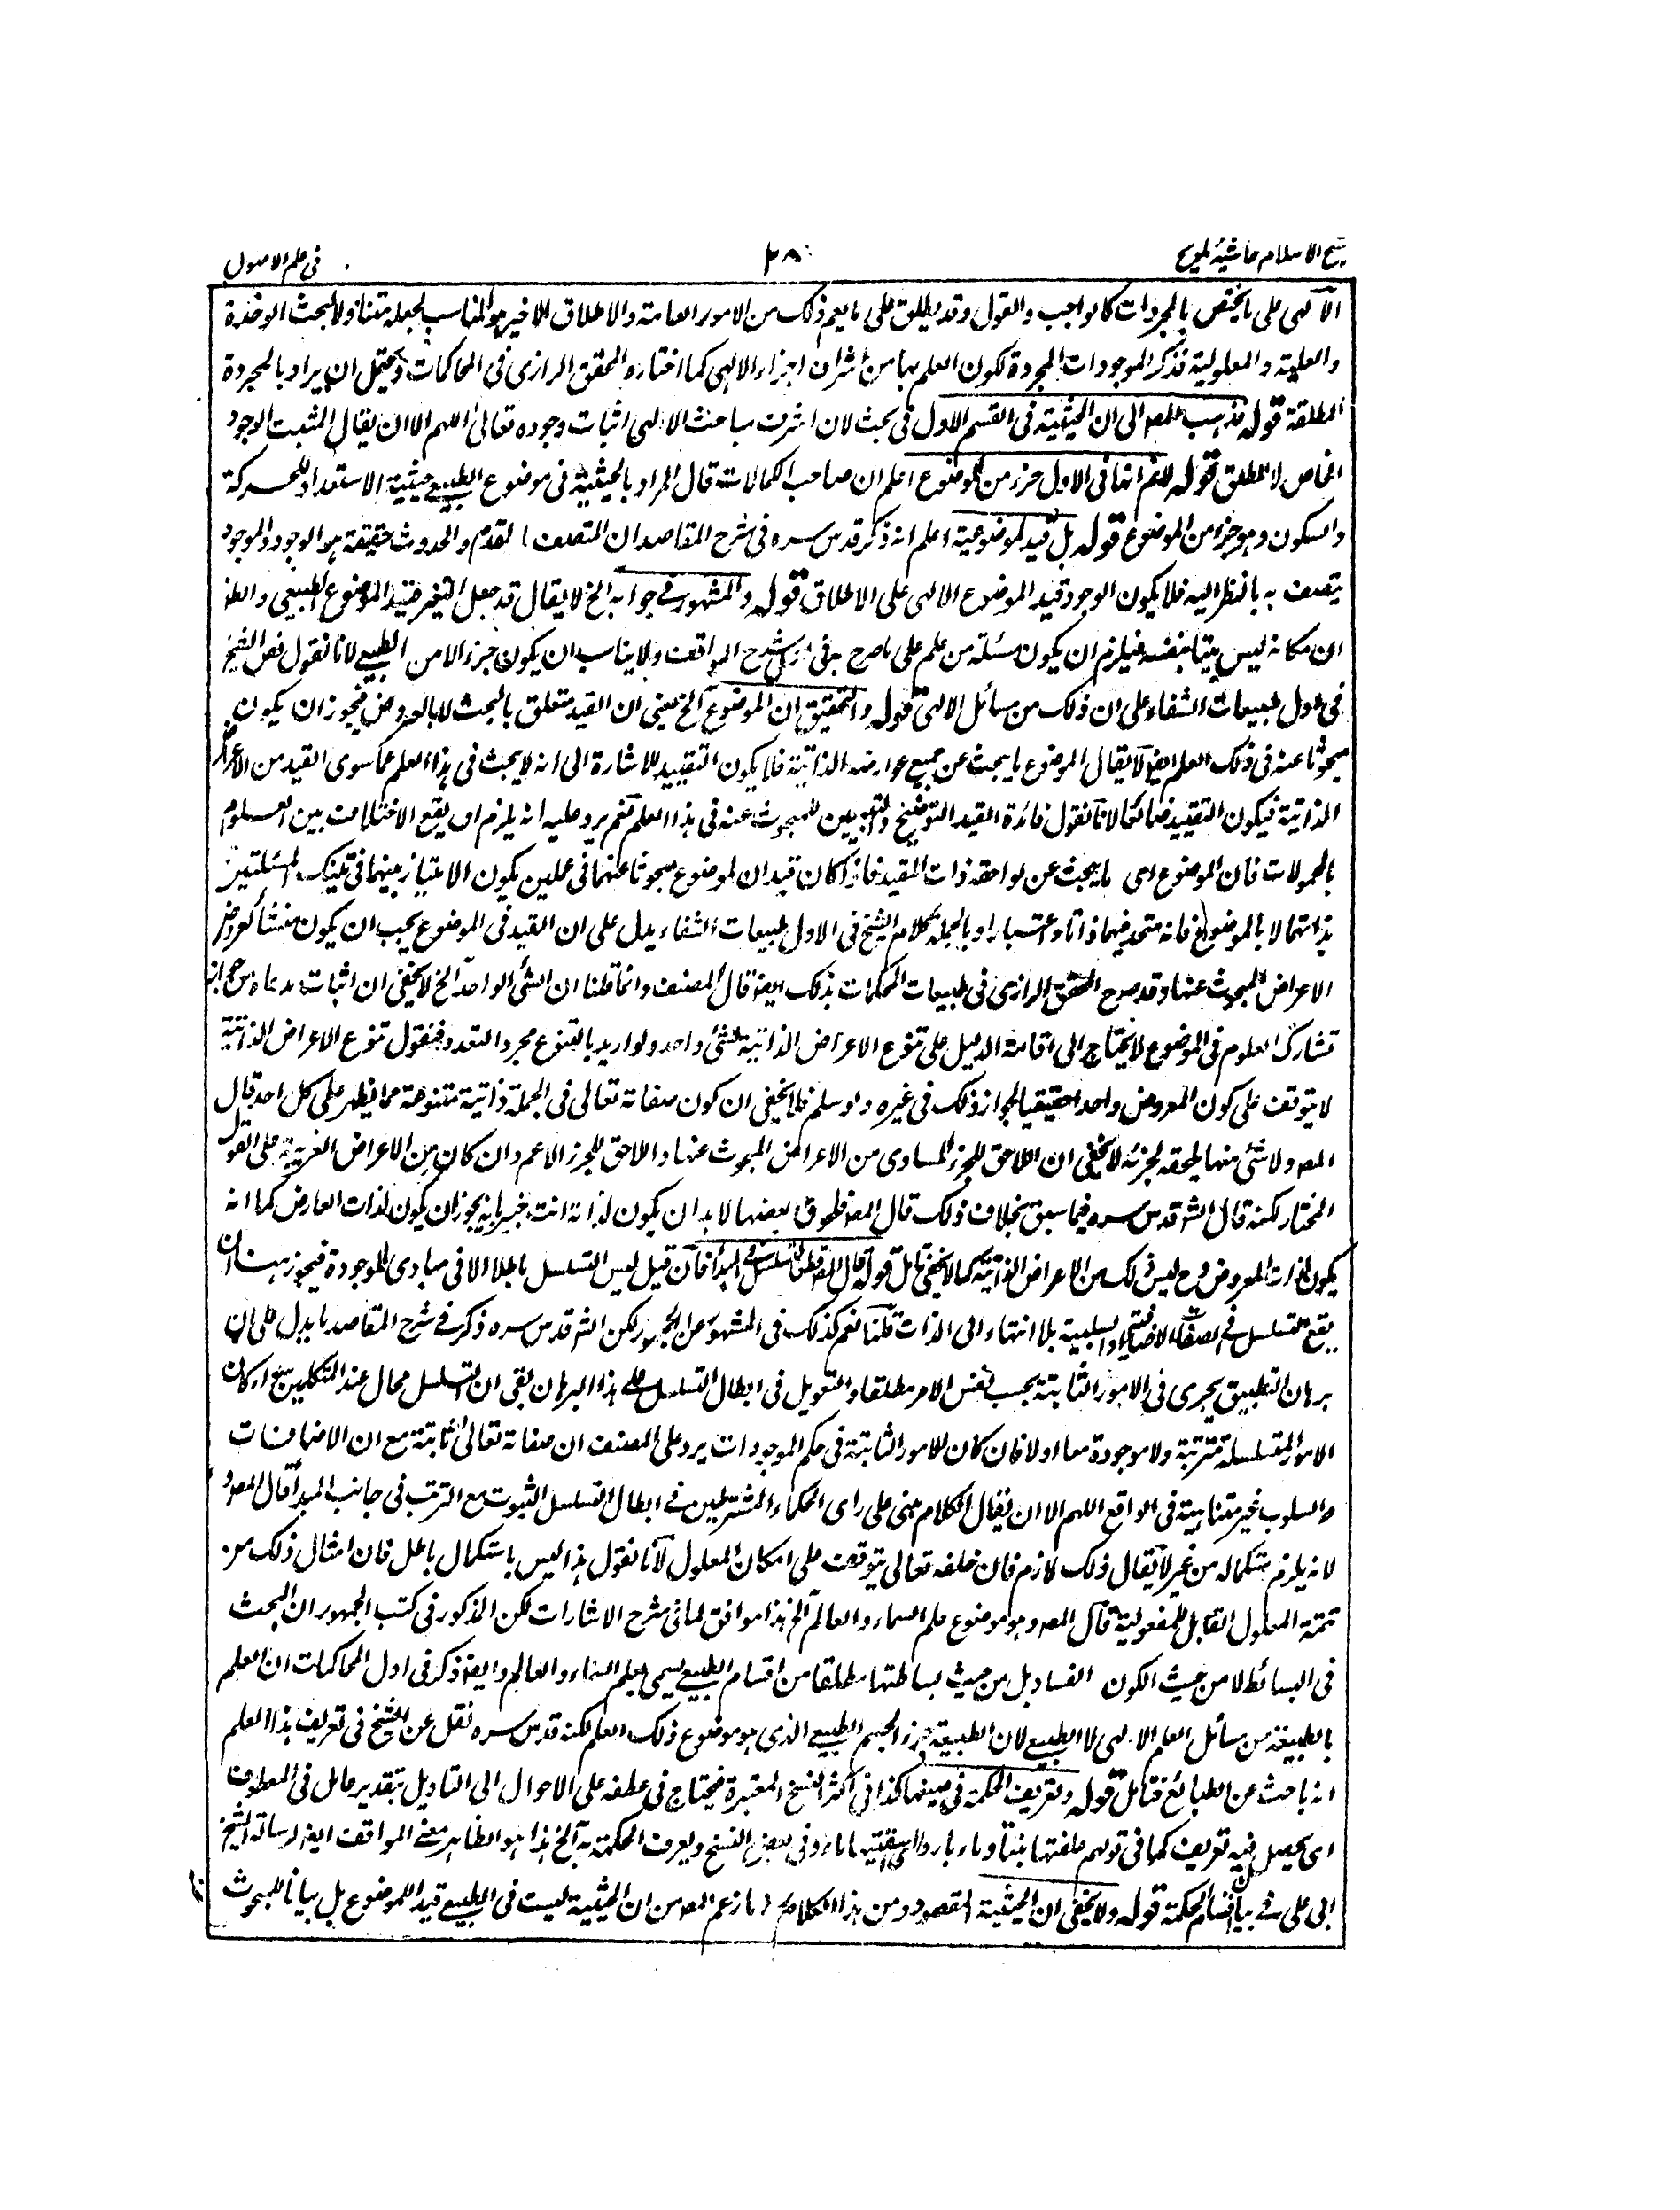 شيخ الاسلام حاشيۂ تلويح
٣٨
فى علم الاصول
الآلهى على ما يختص بالمجردات كالواجب والعقول وقد يطلق على ما يعم ذلك من الامور العامة والاطلاق الاخير هو المناسب لجعله متناولا لبحث الوحدة
والعلية والمعلولية فذكر الموجودات المجردة لكون العلم بها من اشرف اجزاء الالهى كما اختاره المحقق الرازى فى المحاكمات ويحتمل ان يراد بالمجردة
المطلقة قوله فذهب المصـ الى ان الحيثية فى القسم الاول فى بحث لان اشرف مباحث الالهى اثبات وجوده تعالى اللهم الا ان يقال المثبت الوجود
الخاص لا المطلق قوله انها فى الاول جزء من الموضوع اعلم ان صاحب الكمالات قال المراد بالحيثية فى موضوع الطبيعى حيثية الاستعداد للحركة
والسكون وهو جزء من الموضوع قوله بل قيد لموضوعية اعلم انه ذكر قدس سره فى شرح المقاصد ان المتصف بالقدم والحدوث حقيقة هو الوجود والموجود
يتصف به بالنظر اليه فلا يكون الوجود قيد الموضوع الالهى على الاطلاق قوله والمشهور فى جوابه الخ لا يقال قد جعل التغير قيد الموضوع الطبيعى والظ
ان مكانه ليس بينا بنفسه فيلزم ان يكون مسئلة من علم على ما صرح به فى شرح المواقف ولا يناسب ان يكون جزء الا من الطبيعى لانا نقول نص الشيخ
فى اول طبيعات الشفاء على ان ذلك من مسائل الالهى قوله والتحقيق ان الموضوع الخ يعنى ان القيد متعلق بالبحث لا بالعروض فيجوز ان يكون
مبحوثا عنه فى ذلك العلم ايضا لا يقال الموضوع ما يبحث عن جميع عوارضه الذاتية فلا يكون التقييد للاشارة الى انه لا يبحث فى هذا العلم عما سوى القيد من الاعراض
الذاتية فيكون التقييد ضائعا لانا نقول فائدة القيد التوضيح والتبيين للمبحوث عنه فى هذا العلم نعم يرد عليه انه يلزم ان يقع الاختلاف بين العلوم
بالمحمولات فان الموضوع اى ما يبحث عن لواحقه ذات المقيد فاذا كان قيدان لموضوع مبحوثا عنهما فى علمين يكون الامتياز بينهما فى تينك المسئلتين
بذاتهما لا بالموضوع فانه متحد فيهما ذاتا واعتبارا وبالجملة كلام الشيخ فى الاول طبيعات الشفاء يدل على ان القيد فى الموضوع يجب ان يكون منشأ لعروض
الاعراض المبحوث عنها وقد صرح المحقق الرازى فى طبيعات المحكمات بذلك ايضا قال المصنف وانما قلنا ان الشئ الواحد الخ لا يخفى ان اثبات مدعاه من جواز
تشارك العلوم فى الموضوع لا يحتاج الى اقامة الدليل على تنوع الاعراض الذاتية لشئ واحد ولو اريد بالتنوع مجرد التعدد فنقول تنوع الاعراض الذاتية
لا يتوقف على كون المعروض واحدا حقيقيا لجواز ذلك فى غيره ولو سلم فلا يخفى ان كون صفاته تعالى فى الجملة ذاتية متنوعة مما يظهر على كل احد قال
المصـ ولا شئ منها يلحقه لجزئه لا يخفى ان اللاحق للجزء المساوى من الاعراض المبحوث عنها واللاحق للجزء الاعم وان كان من الاعراض الغريبة على القول
المختار لكنه قال الشـ قدس سره فيما سبق بخلاف ذلك قال المصـ فلحوق بعضها لا بد ان يكون لذاته انت خبير بانه يجوز ان يكون لذات العارض كما انه
يكون لذات المعروض وح ليس ذلك من الاعراض الذاتية كما لا يخفى تأمل قوله قال المصـ قطعا للتسلسل فى المبدأ فان قيل ليس التسلسل باطلا الا فى مبادى الموجودة فيجوز ههنا ان
يقع التسلسل فى الصفات الاضافية والسلبية بلا انتهاء الى الذات قلنا نعم كذلك فى المشهور عن الجمهور لكن الشـ قدس سره ذكر فى شرح المقاصد ما يدل على ان
برهان التطبيق يجرى فى الامور الثابتة بحسب نفس الامر مطلقا والتعويل فى ابطال التسلسل على هذا البرهان بقى ان التسلسل محال عند المتكلمين سواء كان
الامور المتسلسلة مترتبة ولا موجودة معا اولا فان كان للامور الثابتة فى حكم الموجودات يرد على المصنف ان صفاته تعالى ثابتة مع ان الاضافات
والسلوب غير متناهية فى الواقع اللهم الا ان يقال الكلام مبنى على راى الحكماء المشترطين فى ابطال التسلسل الثبوت مع الترتب فى جانب المبدأ قال المصـ و
لانه يلزم ستكماله من غيره لا يقال ذلك لازم فان خلقه تعالى يتوقف على امكان المعلول لانا نقول هذا ليس باستكمال باطل فان امثال ذلك من
تتمة المعلول القابل للمفعولية قال المصـ وهو موضوع علم السماء والعالم الخ هذا موافق لما فى شرح الاشارات لكن المذكور فى كتب الجمهور ان البحث
فى البسائط لا من حيث الكون الفساد بل من حيث بساطتها مطلقا من اقسام الطبيعى يسمى بعلم السماء والعالم وايضا ذكر فى اول المحاكمات ان العلم
بالطبيعة من مسائل العلم الالهى لا الطبيعى لان الطبيعة جزء الجسم الطبيعى الذى هو موضوع ذلك العلم لكنه قدس سره نقل عن الشيخ فى تعريف هذا العلم
انه باحث عن الطبائع فتأمل قوله وتعريف الحكمة فى صيغها كذا فى اكثر النسخ المعتبرة فيحتاج فى عطفه على الاحوال الى التاويل بتقدير عامل فى المعطوف
اى يحصل فيه تعريف كما فى قولهم علفتها تبنا وماء باردا اى سقيته ماء وفى بعض النسخ ويعرف الحكمة به الخ هذا هو الظاهر معنى المواقف ايضا لرسالة الشيخ
ابى على فى بيان اقسام الحكمة قوله ولا يخفى ان الحيثية المقصود من هذا الكلام ما زعم المصـ من ان الحيثية ليست فى الطبيعى قيدا للموضوع بل بيانا للمبحوث